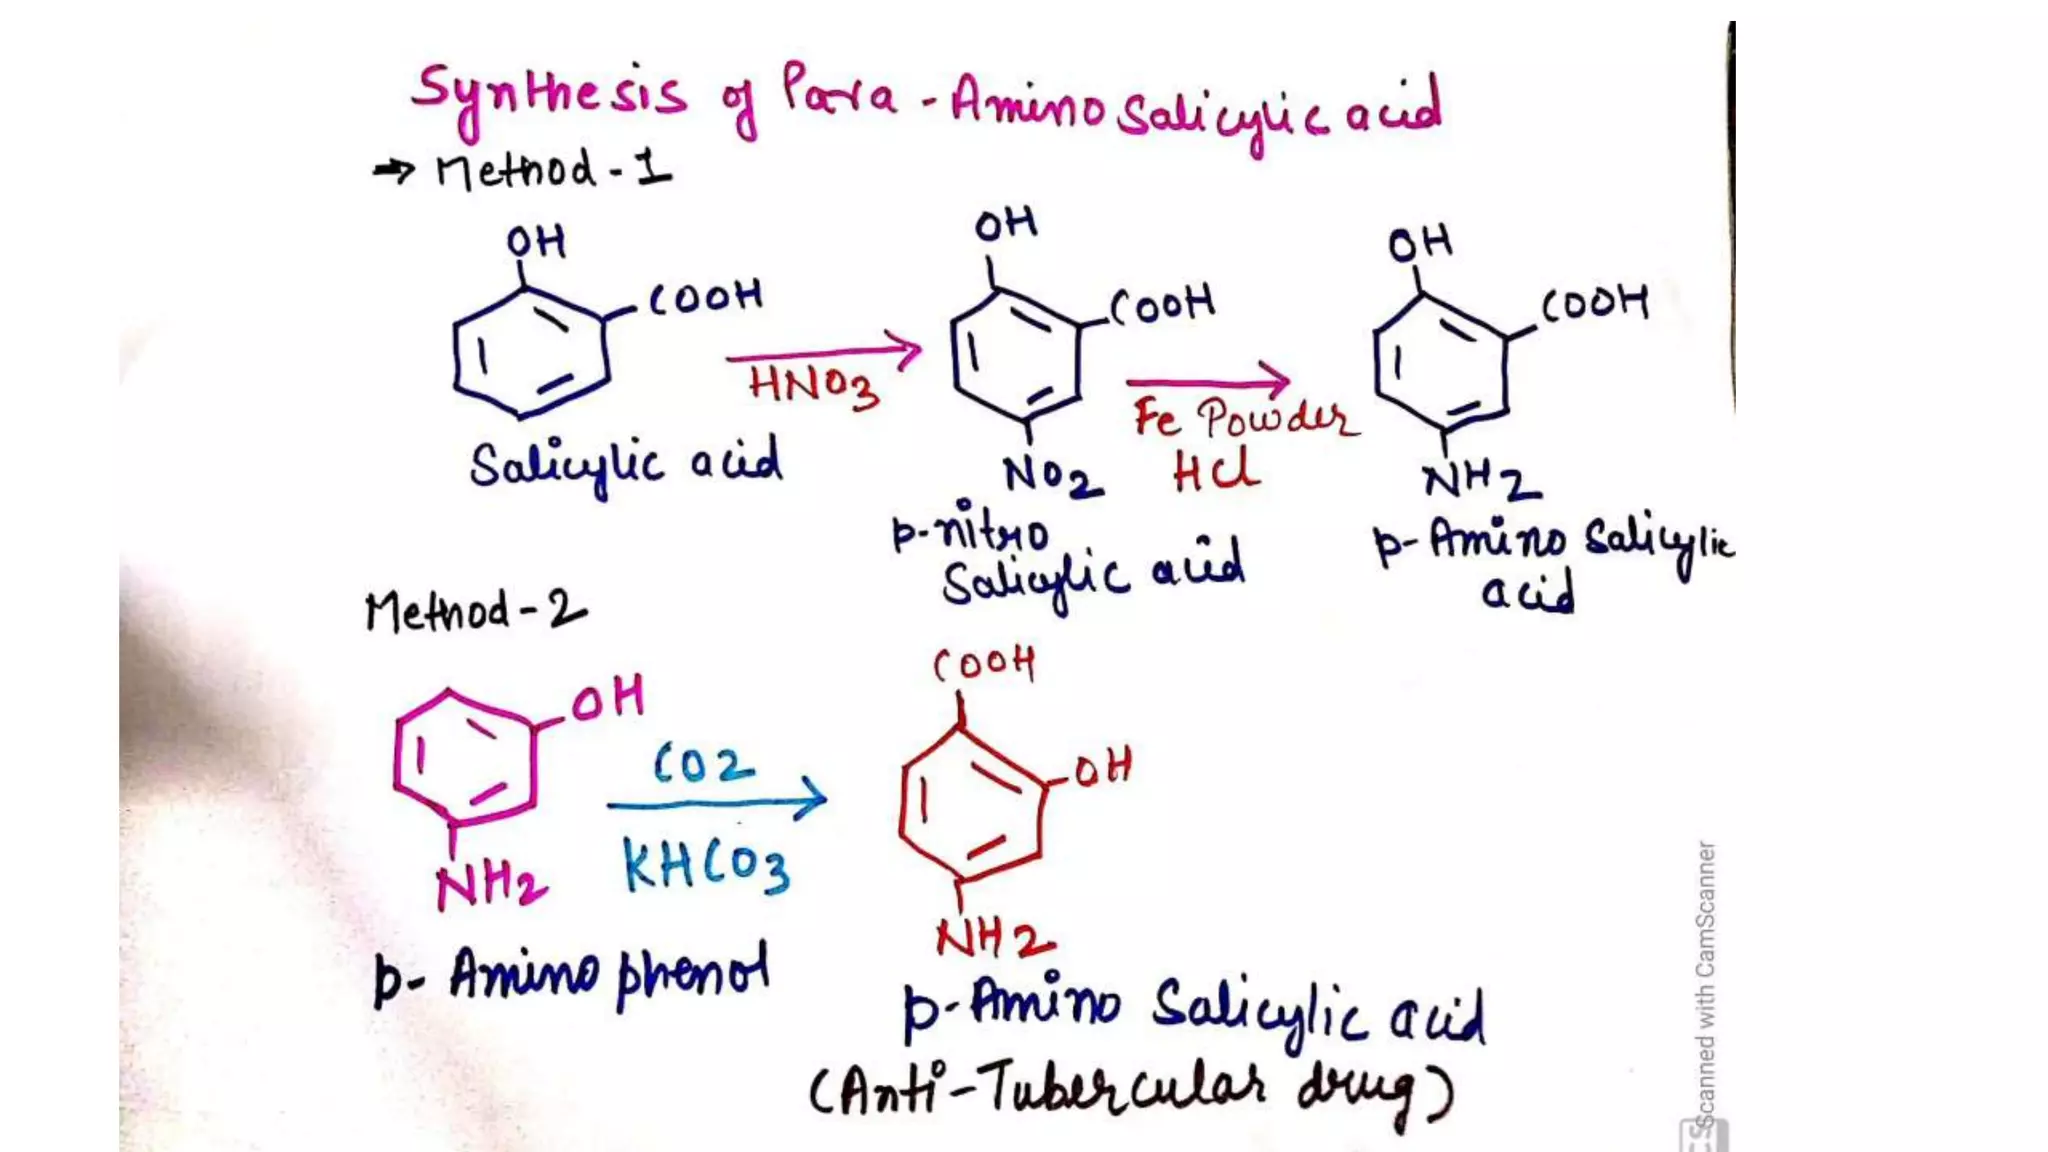 Synthesis of Para-Amino Salicylic acid
→ Method-1
OH
COOH
HNO3
Salicylic acid
OH
COOH
NO2
p-nitro
Salicylic acid
Fe Powder
HCl
OH
COOH
NH2
p-Amino Salicylic
acid
Method-2
OH
NH2
p-Amino phenol
CO2
KHCO3
COOH
OH
NH2
p-Amino Salicylic acid
(Anti-Tubercular drug)
Scanned with CamScanner
CS